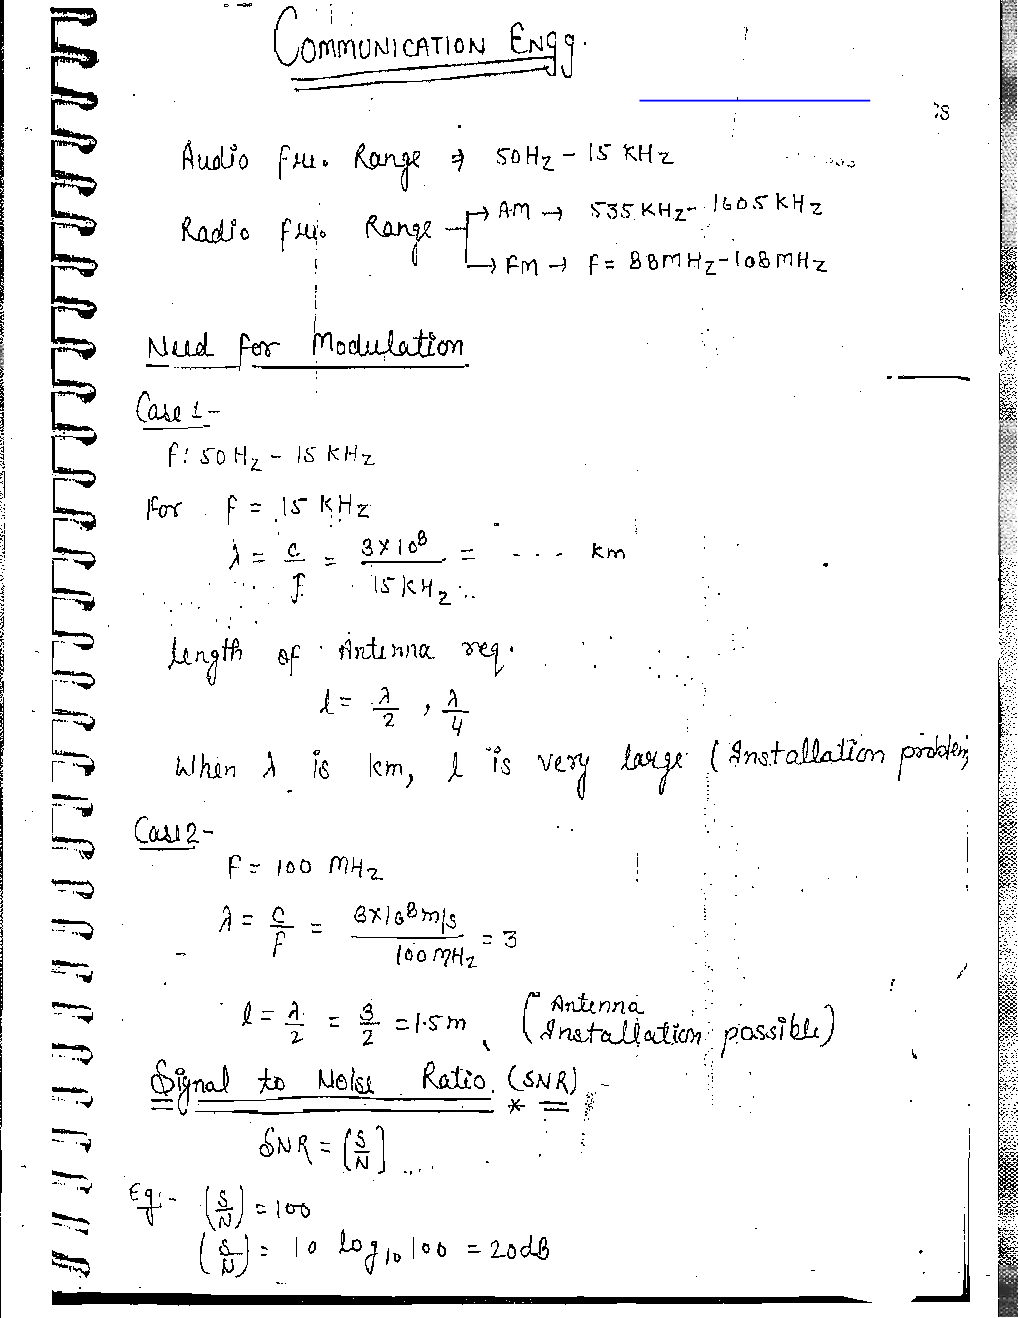 COMMUNICATION ENGG.
Audio freq. Range ⇒ 50Hz - 15 KHz
Radio freq. Range → AM → 535 KHz - 1605 KHz
→ FM → f = 88MHz - 108MHz
Need for Modulation
Case 1-
f: 50Hz - 15 KHz
For f = 15 KHz
λ = c/f = 3×10⁸/15KHz = - - - - km
length of Antenna req.
l = λ/2 , λ/4
When λ is km, l is very large (Installation problem)
Case 2-
F = 100 MHz
λ = c/F = 3×10⁸m/s/100MHz = 3
l = λ/2 = 3/2 = 1.5m (Antenna
Installation possible)
Signal to Noise Ratio (SNR)
*
SNR = (S/N)
Eg:- (S/N) = 100
(S/N) = 10 log₁₀100 = 20dB